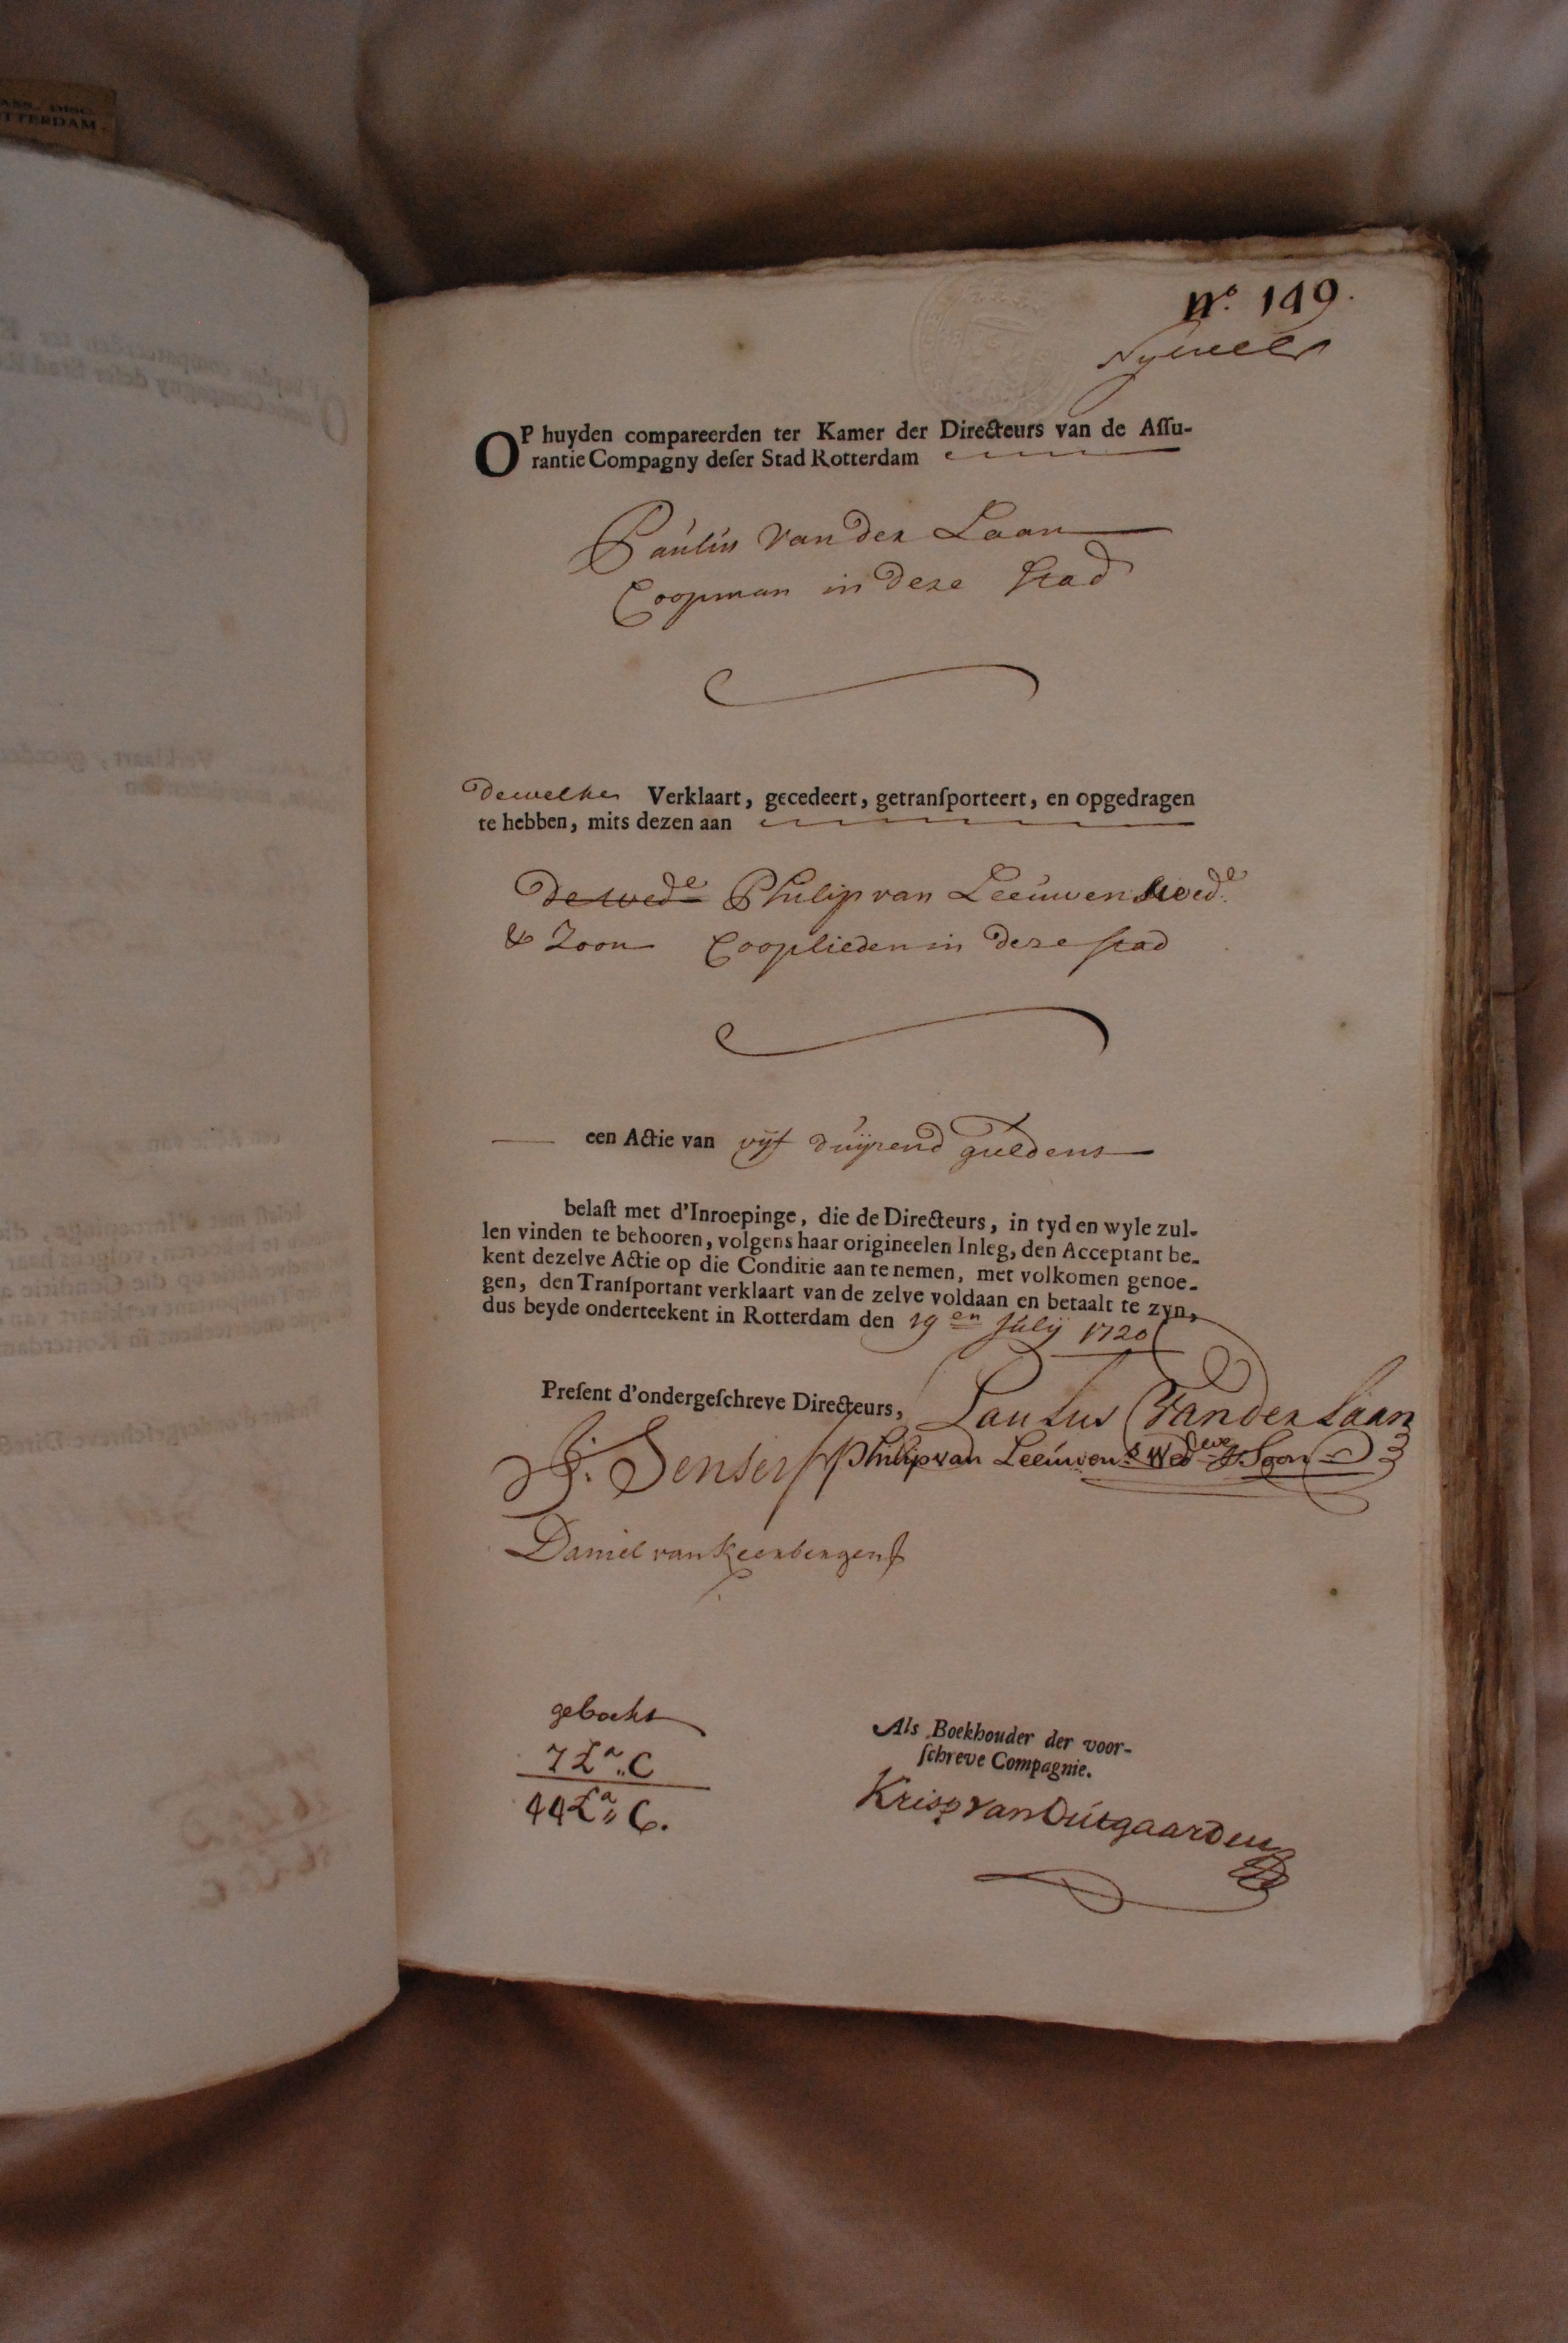 TTERDAM
Nº. 149.
OP huyden compareerden ter Kamer der Directeurs van de Aſſu-
rantie Compagny deſer Stad Rotterdam
Paulus van der Laan
Coopman in deze stad
dewelke Verklaart, gecedeert, getranſporteert, en opgedragen
te hebben, mits dezen aan
De wede Philip van Leeuwens wede
& Zoon Cooplieden in deze stad
een Actie van vijf duijzend guldens
belaſt met d'Inroepinge, die de Directeurs, in tyd en wyle zul-
len vinden te behooren, volgens haar origineelen Inleg, den Acceptant be-
kent dezelve Actie op die Conditie aan te nemen, met volkomen genoe-
gen, den Tranſportant verklaart van de zelve voldaan en betaalt te zyn,
dus beyde onderteekent in Rotterdam den 19en Julij 1720
Preſent d'ondergeſchreve Directeurs, Paulus Van der Laan
J: Senserff Philip van Leeuwens Wedewe & Soon
Daniel van Keerbergen
geboekt
7 La,, C
44 La,, C.
Als Boekhouder der voor-
ſchreve Compagnie.
Krisp van Outgaarden